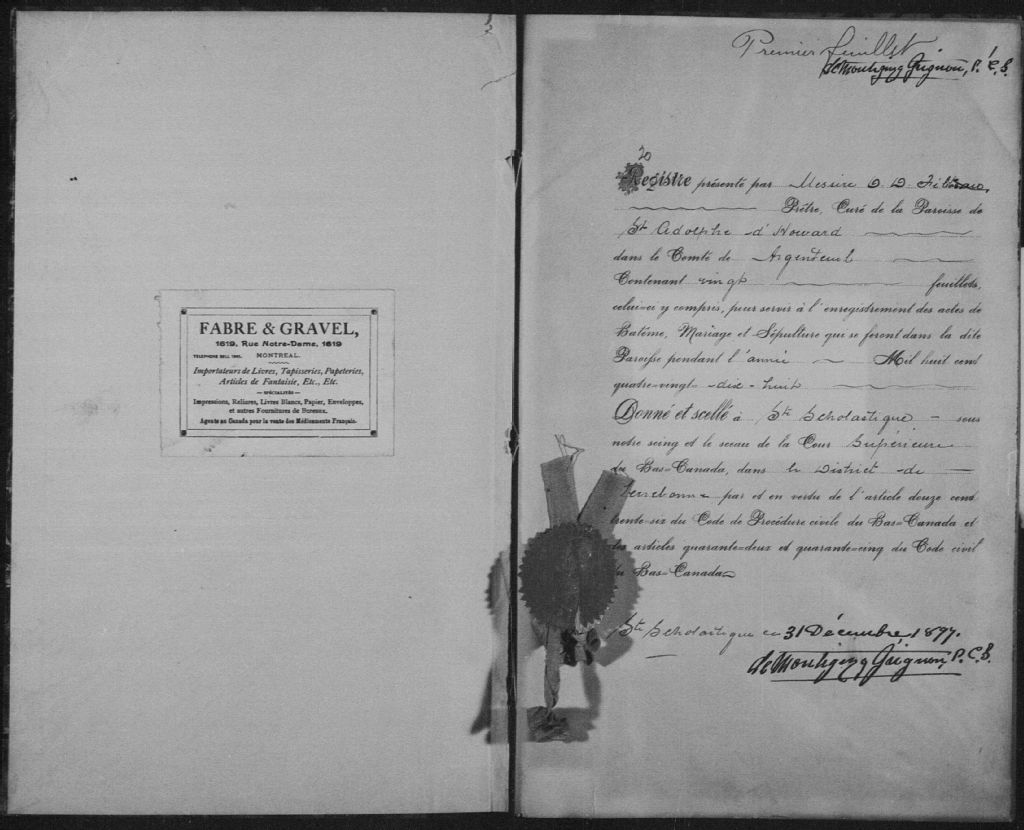 FABRE & GRAVEL,
1619, Rue Notre-Dame, 1619
TELEPHONE BELL
MONTREAL.
Importateurs de Livres, Tapisseries, Papeteries,
Articles de Fantaisie, Etc., Etc.
— SPÉCIALITÉS —
Impressions, Reliures, Livres Blancs, Papier, Enveloppes,
et autres Fournitures de Bureaux.
Agents au Canada pour la vente des Médicaments Français.
Premier feuillet
de Montigny Grignon, P.C.S.
20
Registre présenté par Messire O D
Prêtre, Curé de la Paroisse de
St Adolphe d'Howard
dans le Comté de Argenteuil
Contenant vingt feuillets,
celui-ci y compris, pour servir à l'enregistrement des actes de
Batême, Mariage et Sépulture qui se feront dans la dite
Paroisse pendant l'année Mil huit cent
quatre-vingt-dix-huit
Donné et scellé à Ste Scholastique – sous
notre seing et le sceau de la Cour Supérieure
du Bas-Canada, dans le District de
Terrebonne par et en vertu de l'article douze cent
trente-six du Code de Procédure civile du Bas-Canada et
des articles quarante-deux et quarante-cinq du Code civil
du Bas-Canada
Ste Scholastique ce 31 Décembre, 1897.
de Montigny Grignon, P.C.S.